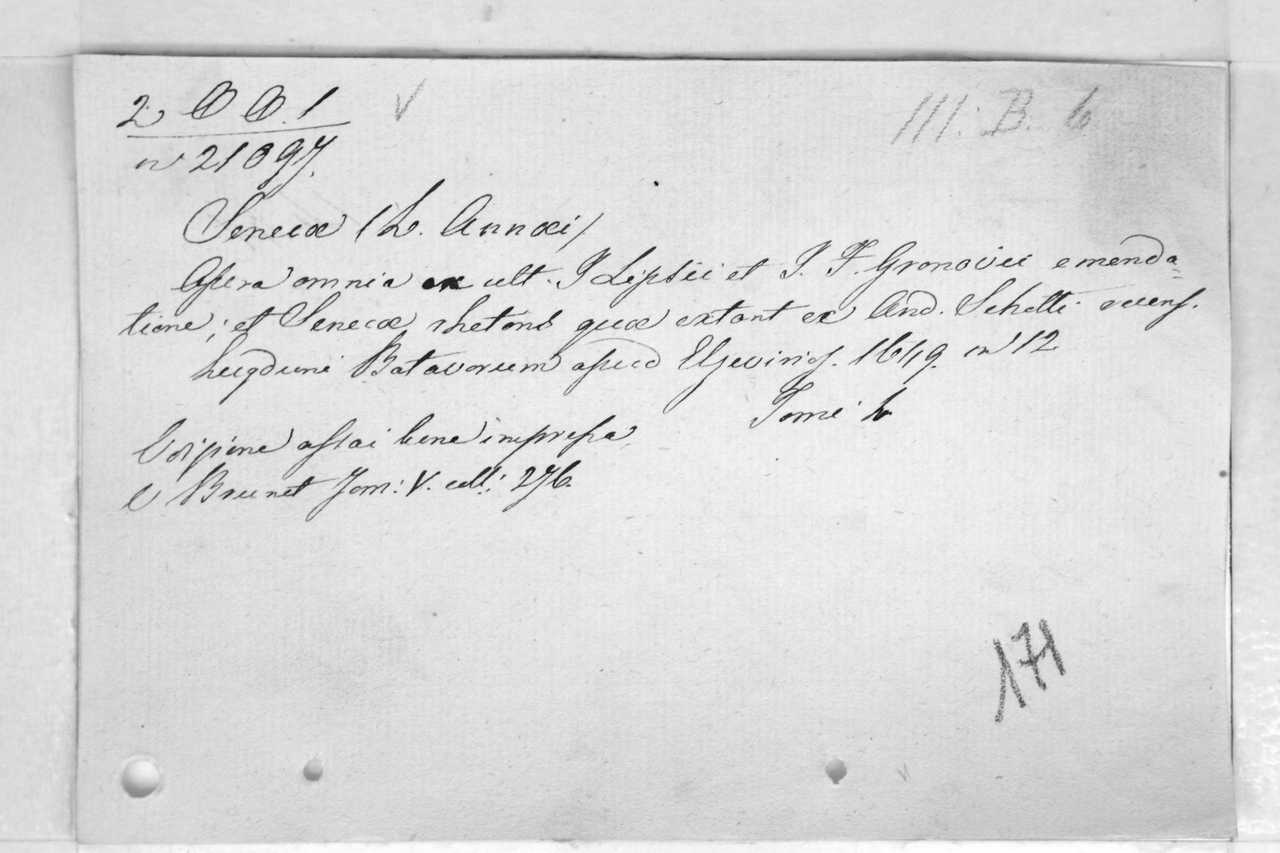 2 O O. 1 V III. B. 6
n° 21097.
Senecæ (L. Annæi)
Opera omnia ex ult. J Lipsii et J. F. Gronovii emenda=
tione; et Senecæ rhetoris quæ extant ex And. Schotti recens.
Lugduni Batavorum apud Elzevirios. 1649 in 12
Tomi 4
Edizione assai bene impressa
V Brunet Tom: V. coll: 276.
171